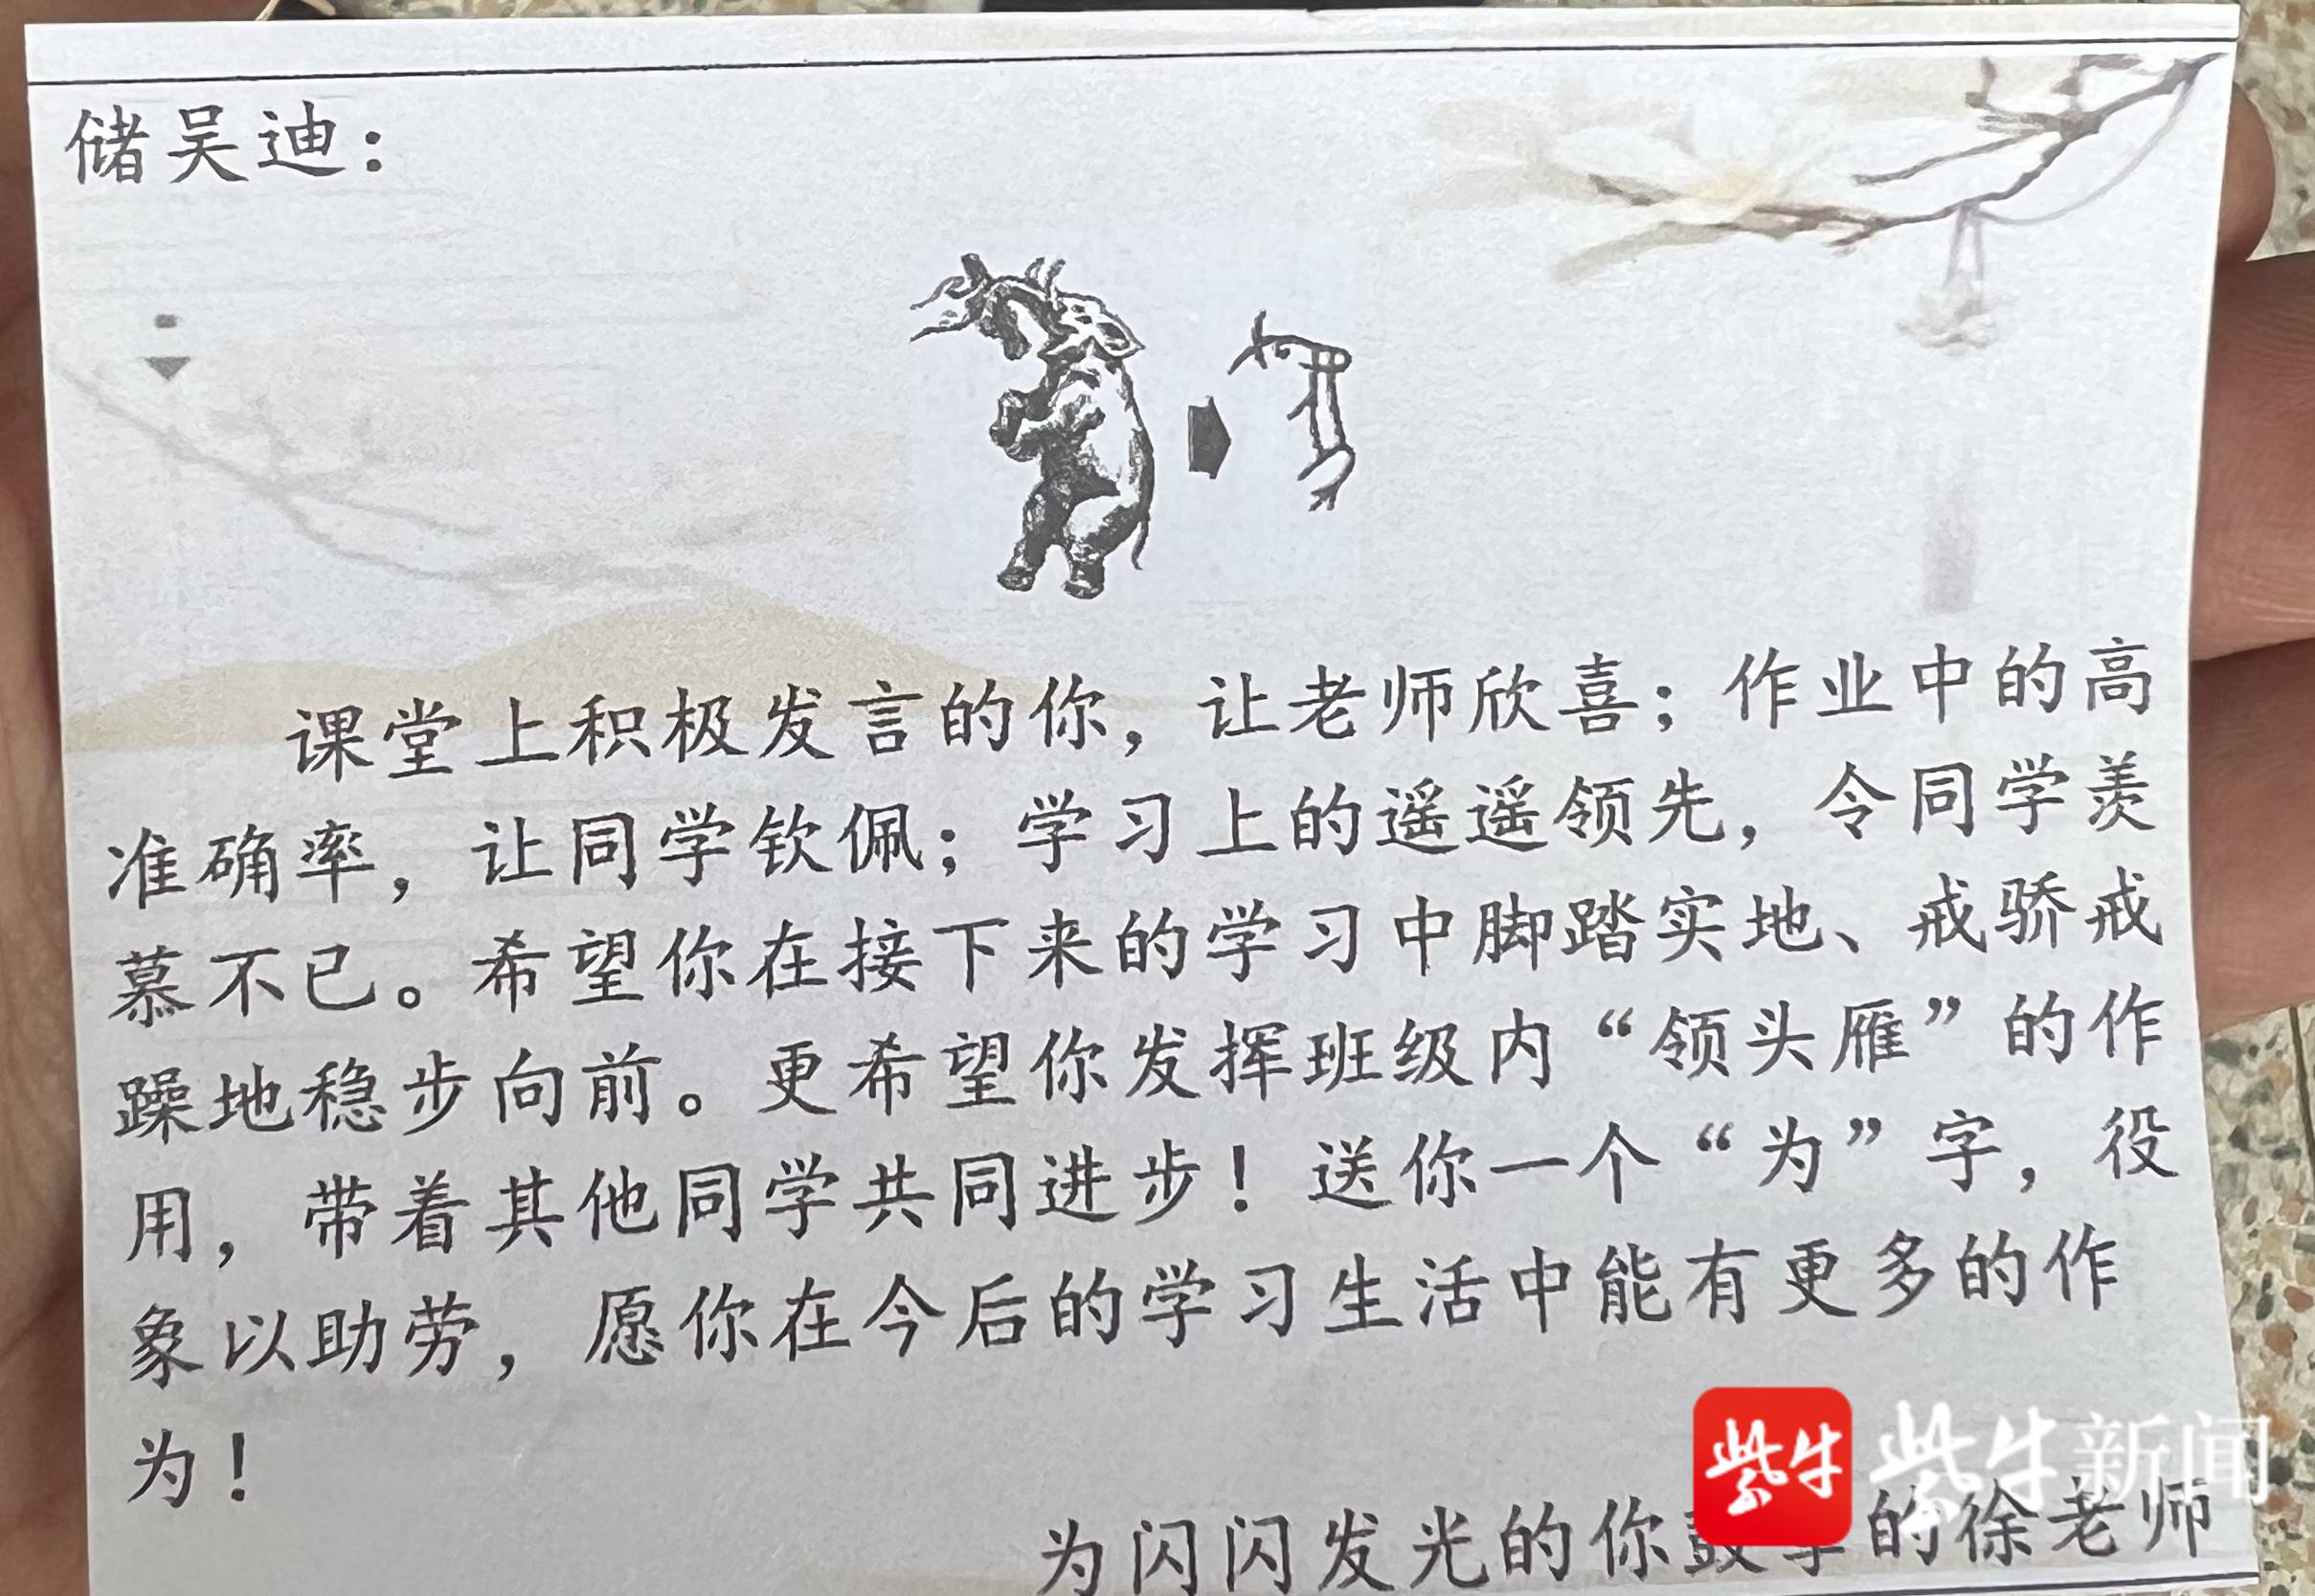 储吴迪：
课堂上积极发言的你，让老师欣喜；作业中的高
准确率，让同学钦佩；学习上的遥遥领先，令同学羡
慕不已。希望你在接下来的学习中脚踏实地、戒骄戒
躁地稳步向前。更希望你发挥班级内“领头雁”的作
用，带着其他同学共同进步！送你一个“为”字，役
象以助劳，愿你在今后的学习生活中能有更多的作
为！
紫牛 紫牛新闻
为闪闪发光的你鼓掌的徐老师